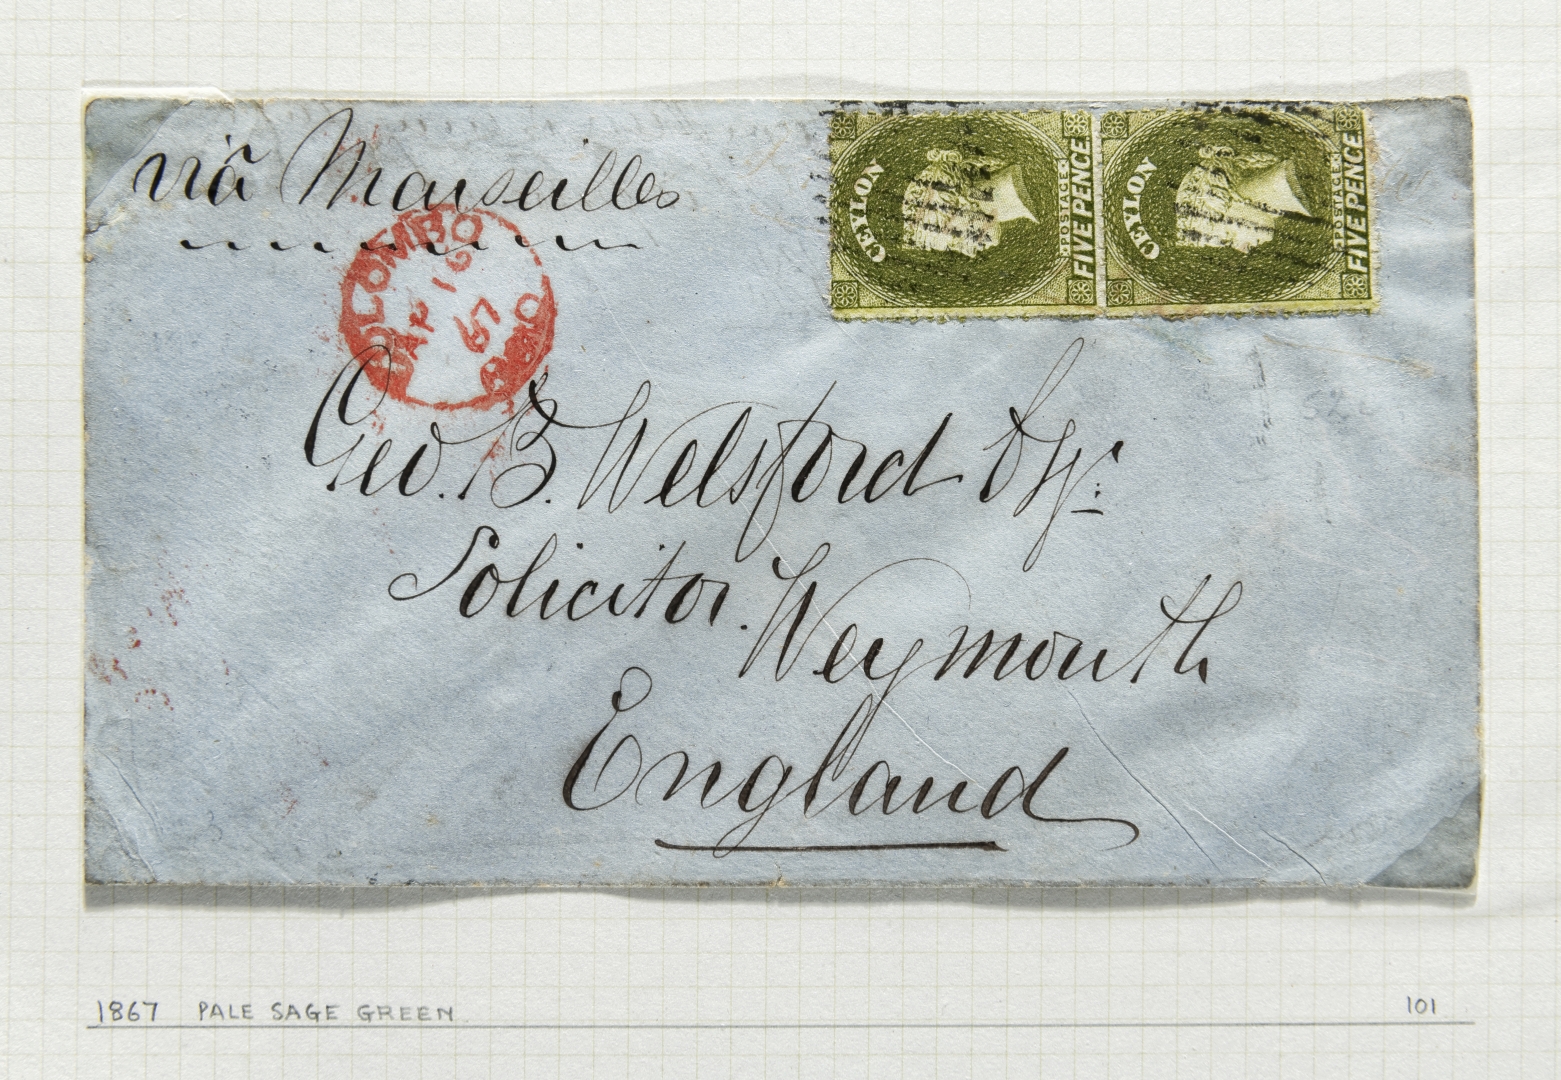 viâ Marseilles
CEYLON POSTAGE FIVE PENCE
CEYLON POSTAGE FIVE PENCE
COLOMBO
16
67
PAID
Geo. B. Welsford Esqr.
Solicitor. Weymouth
England
1867 PALE SAGE GREEN 101